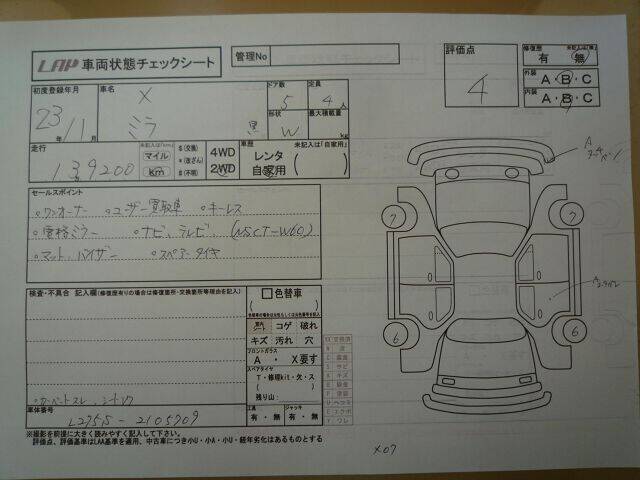 LAP 車両状態チェックシート
管理No
評価点
4
修復歴 未記入は(無)
有 無
外装 A・B・C
内装 A・B・C
初度登録年月
23年/11月
車名
X
ミラ
黒
ドア数
5
定員
4人
形状
W
最大積載量
kg
走行
139200
未記入は「km」
マイル
km
$(交換)
*(改ざん)
#(不明)
4WD
2WD
車歴 未記入は「自家用」
レンタ
自家用
セールスポイント
・ワンオーナー ・ユーザー買取車 ・キーレス
・電格ミラー ・ナビ、テレビ、(NSCT-W60)
・マット、バイザー ・スペアータイヤ
検査・不具合 記入欄(修復歴有りの場合は修復箇所・交換箇所等理由を記入)
・カーペットスレ、シート
色替車
コゲ 破れ
キズ 汚れ 穴
フロントガラス
A・X要す
スペアタイヤ
T・修理kit・欠・ス
残り山:
工具
有・無
ジャッキ
有・無
車体番号
L275S-2105709
※撮影を前提に大きく読みやすく記入して下さい。
評価点、評価基準はLAA基準を適用、中古車につき小U・小A・小U・経年劣化はあるものとする
A
7
7
6
6
X07